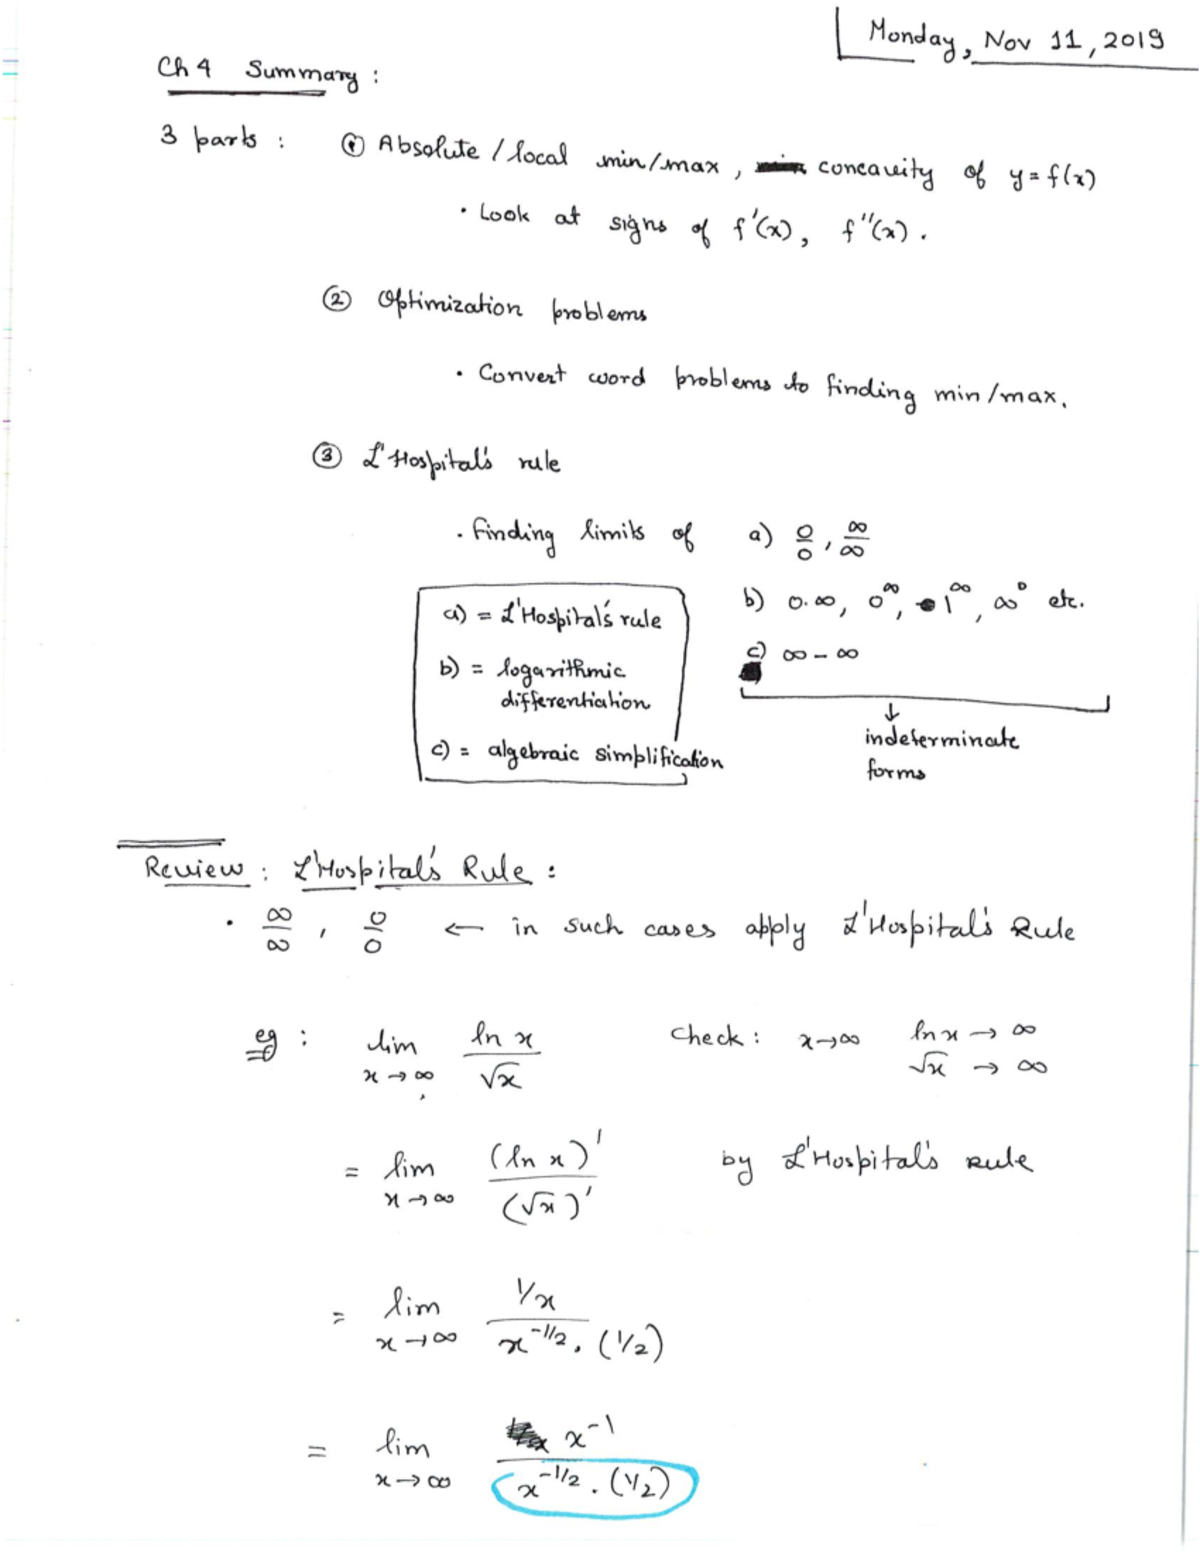 Monday, Nov 11, 2019
Ch 4 Summary :
3 parts : ① Absolute / local min/max, concavity of y = f(x)
• Look at signs of f'(x), f''(x).
② Optimization problems
• Convert word problems to finding min/max.
③ L'Hospital's rule
• finding limits of a) 0/0, ∞/∞
b) 0·∞, 0^∞, 1^∞, ∞^0 etc.
c) ∞ – ∞
↓
indeterminate
forms
a) = L'Hospital's rule
b) = logarithmic
differentiation
c) = algebraic simplification
Review : L'Hospital's Rule :
• ∞/∞ , 0/0 ← in such cases apply L'Hospital's Rule
eg : lim x→∞ ln x / √x Check : x→∞ ln x → ∞
√x → ∞
= lim x→∞ (ln x)' / (√x)' by L'Hospital's Rule
= lim x→∞ 1/x / x^-1/2 . (1/2)
= lim x→∞ x^-1 / x^-1/2 . (1/2)